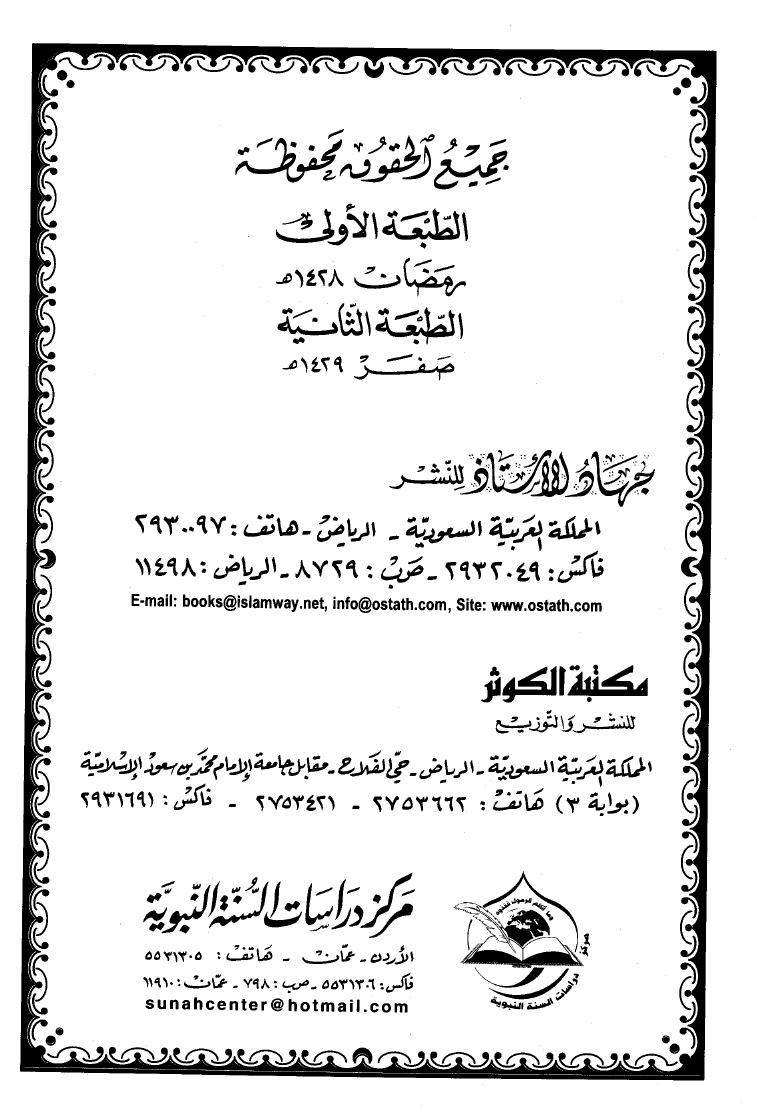 جَمِيعُ الحُقُوقِ مَحْفُوظَة
الطَّبْعَة الأولى
رمضان ١٤٢٨هـ
الطَّبْعَة الثَّانية
صَفَر ١٤٢٩هـ
جهاد الأستاذ للنّشر
المملكة العربيّة السعوديّة ـ الرياض ـ هاتف : ٢٩٣٠٠٩٧
فاكس : ٢٩٣٢٠٤٩ ـ ص ب : ٨٧٢٩ ـ الرياض : ١١٤٩٨
E-mail: books@islamway.net, info@ostath.com, Site: www.ostath.com
مكتبة الكوثر
للنشر والتّوزيع
المملكة العربيّة السعوديّة ـ الرياض ـ حيّ الفلاح ـ مقابل جامعة الإمام محمّد بن سعود الإسلاميّة
(بوابة ٣) هاتف : ٢٧٥٣٦٦٢ ـ ٢٧٥٣٤٢١ ـ فاكس : ٢٩٣١٦٩١
مركز دراسات السُّنّة النّبويَّة
الأردن ـ عمّان ـ هاتف : ٥٥٣١٣٠٥
فاكس : ٥٥٣١٣٠٦ ـ صب : ٧٩٨ ـ عمّان : ١١٩١٠
sunahcenter@hotmail.com
وما آتاكم الرسول فخذوه
مركز
دراسات السنة النبوية